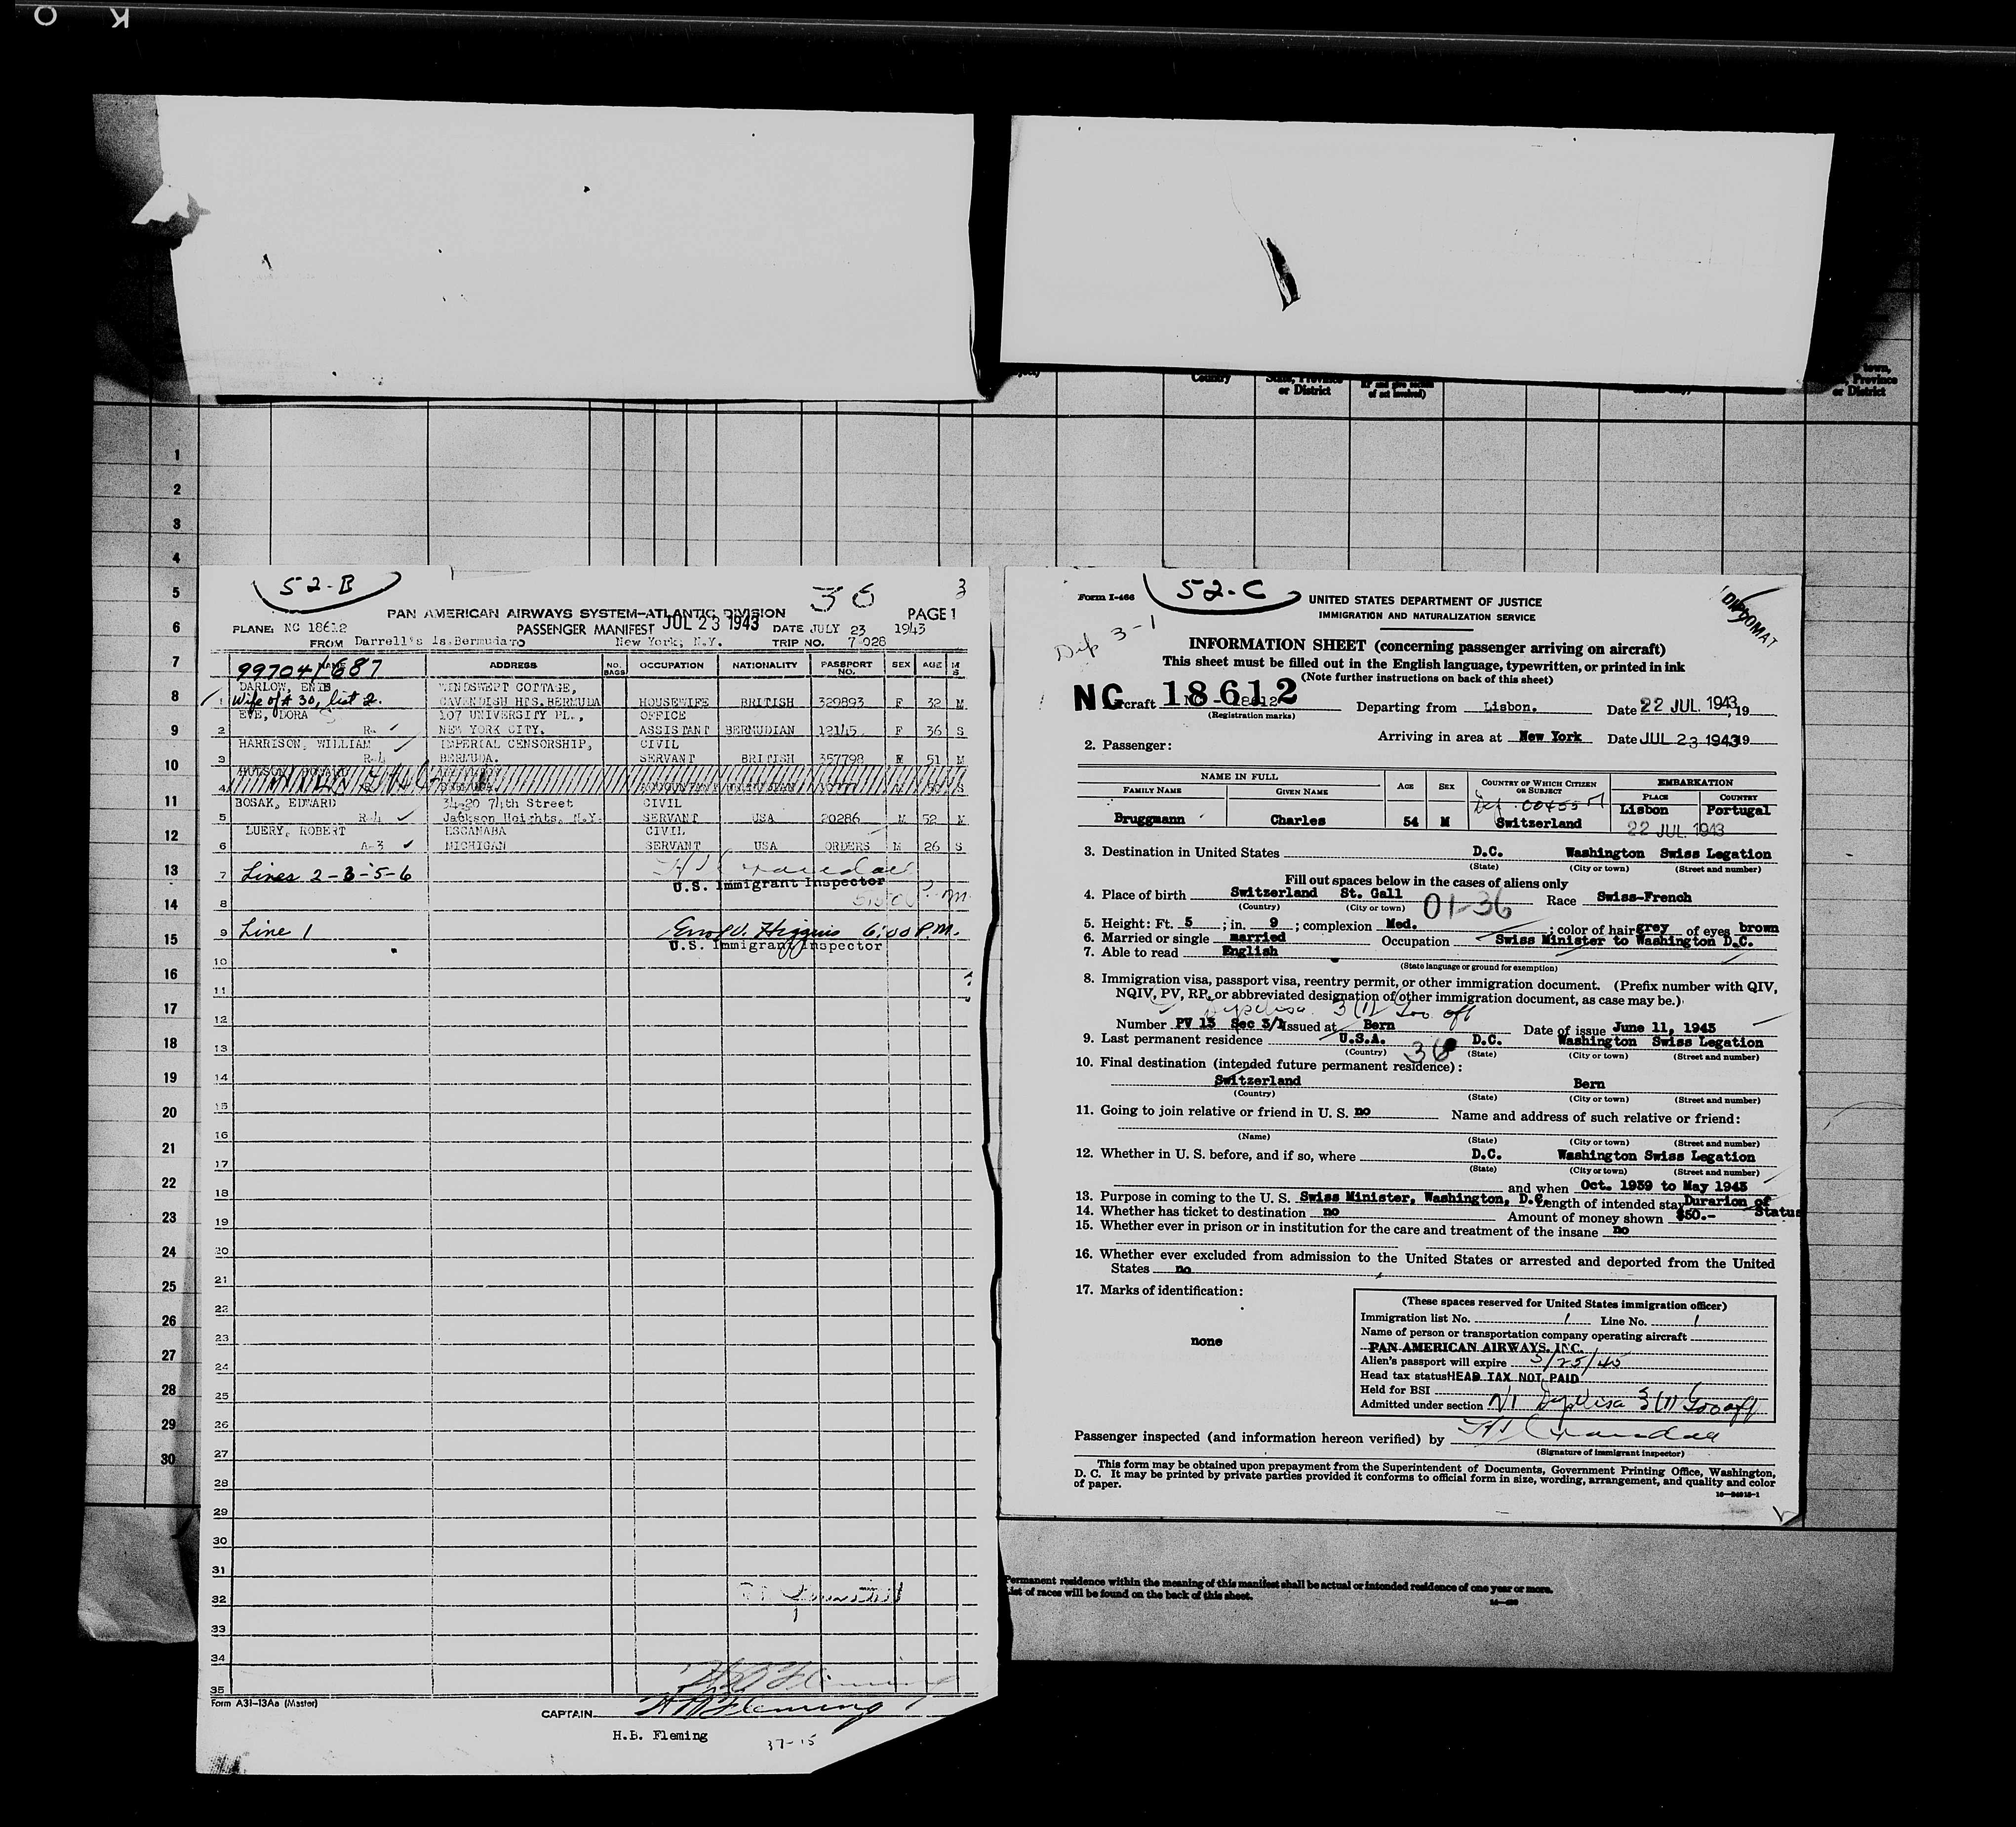 O K
Country
State, Province
or District
RP and give section
of act involved)
town,
Province
or District
1
2
3
4
5
6
7
8
9
10
11
12
13
14
15
16
17
18
19
20
21
22
23
24
25
26
27
28
29
30
52-B
36
3
PAN AMERICAN AIRWAYS SYSTEM—ATLANTIC DIVISION
PAGE 1
PLANE: NC 18612
PASSENGER MANIFEST
JUL 23 1943
DATE JULY 23 1943
FROM Darrell's Is.Bermuda TO New York, N.Y. TRIP NO. 7-028
NAME ADDRESS NO. BAGS OCCUPATION NATIONALITY PASSPORT NO. SEX AGE M S
99704/687
DARLOW, ENID WINDSWEPT COTTAGE,
1 Wife of # 30, list 2. CAVENDISH HTS.BERMUDA HOUSEWIFE BRITISH 329893 F 32 M
EVE, DORA 107 UNIVERSITY PL., OFFICE
2 R- NEW YORK CITY. ASSISTANT BERMUDIAN 12145 F 36 S
HARRISON, WILLIAM IMPERIAL CENSORSHIP, CIVIL
3 R-4 BERMUDA. SERVANT BRITISH 357798 M 51 M
4
BOSAK, EDWARD 34-20 74th Street CIVIL
5 R-4 Jackson Heights, N.Y. SERVANT USA 20286 M 52 M
LUERY, ROBERT ESCANABA CIVIL
6 A-3 MICHIGAN SERVANT USA ORDERS M 26 S
7 Lines 2-3-5-6
U.S. Immigrant Inspector
8
9 Line 1 Errol V. Higgins 6:00 P.M.
U.S. Immigrant Inspector
10
11
12
13
14
15
16
17
18
19
20
21
22
23
24
25
26
27
28
29
30
31
32
33
34
35
Form A31-13Aa (Master)
CAPTAIN H B Fleming
H.B. Fleming
37-15
Form I-466
52-C
UNITED STATES DEPARTMENT OF JUSTICE
IMMIGRATION AND NATURALIZATION SERVICE
DIPLOMAT
Dip 3-1
INFORMATION SHEET (concerning passenger arriving on aircraft)
This sheet must be filled out in the English language, typewritten, or printed in ink
(Note further instructions on back of this sheet)
NC craft 18612 Departing from Lisbon. Date 22 JUL. 1943, 19
(Registration marks)
Arriving in area at New York Date JUL 23 1943 19
2. Passenger:
NAME IN FULL
FAMILY NAME GIVEN NAME AGE SEX COUNTRY OF WHICH CITIZEN OR SUBJECT EMBARKATION
PLACE COUNTRY
Bruggmann Charles 54 M Switzerland Lisbon Portugal
22 JUL. 1943
3. Destination in United States D.C. Washington Swiss Legation
(State) (City or town) (Street and number)
Fill out spaces below in the cases of aliens only
4. Place of birth Switzerland St. Gall Race Swiss-French
(Country) (City or town)
01-36
5. Height: Ft. 5 ; in. 9 ; complexion Med. ; color of hair grey of eyes brown
6. Married or single married Occupation Swiss Minister to Washington D.C.
7. Able to read English
(State language or ground for exemption)
8. Immigration visa, passport visa, reentry permit, or other immigration document. (Prefix number with QIV,
NQIV, PV, RP, or abbreviated designation of other immigration document, as case may be.)
Number PV 13 Sec 3/1 Issued at Bern Date of issue June 11, 1943
9. Last permanent residence U.S.A. D.C. Washington Swiss Legation
(Country) 36 (State) (City or town) (Street and number)
10. Final destination (intended future permanent residence):
Switzerland Bern
(Country) (State) (City or town) (Street and number)
11. Going to join relative or friend in U. S. no Name and address of such relative or friend:
(Name) (State) (City or town) (Street and number)
12. Whether in U. S. before, and if so, where D.C. Washington Swiss Legation
(State) (City or town) (Street and number)
and when Oct. 1939 to May 1943
13. Purpose in coming to the U. S. Swiss Minister, Washington, D.C. Length of intended stay Durarion of Status
14. Whether has ticket to destination no Amount of money shown $50.-
15. Whether ever in prison or in institution for the care and treatment of the insane no
16. Whether ever excluded from admission to the United States or arrested and deported from the United
States no
17. Marks of identification:
none
(These spaces reserved for United States immigration officer)
Immigration list No. 1 Line No. 1
Name of person or transportation company operating aircraft
PAN AMERICAN AIRWAYS, INC.
Alien's passport will expire
Head tax status HEAD TAX NOT PAID
Held for BSI
Admitted under section
Passenger inspected (and information hereon verified) by
(Signature of immigrant inspector)
This form may be obtained upon prepayment from the Superintendent of Documents, Government Printing Office, Washington,
D. C. It may be printed by private parties provided it conforms to official form in size, wording, arrangement, and quality and color
of paper.
Permanent residence within the meaning of this manifest shall be actual or intended residence of one year or more.
List of races will be found on the back of this sheet.